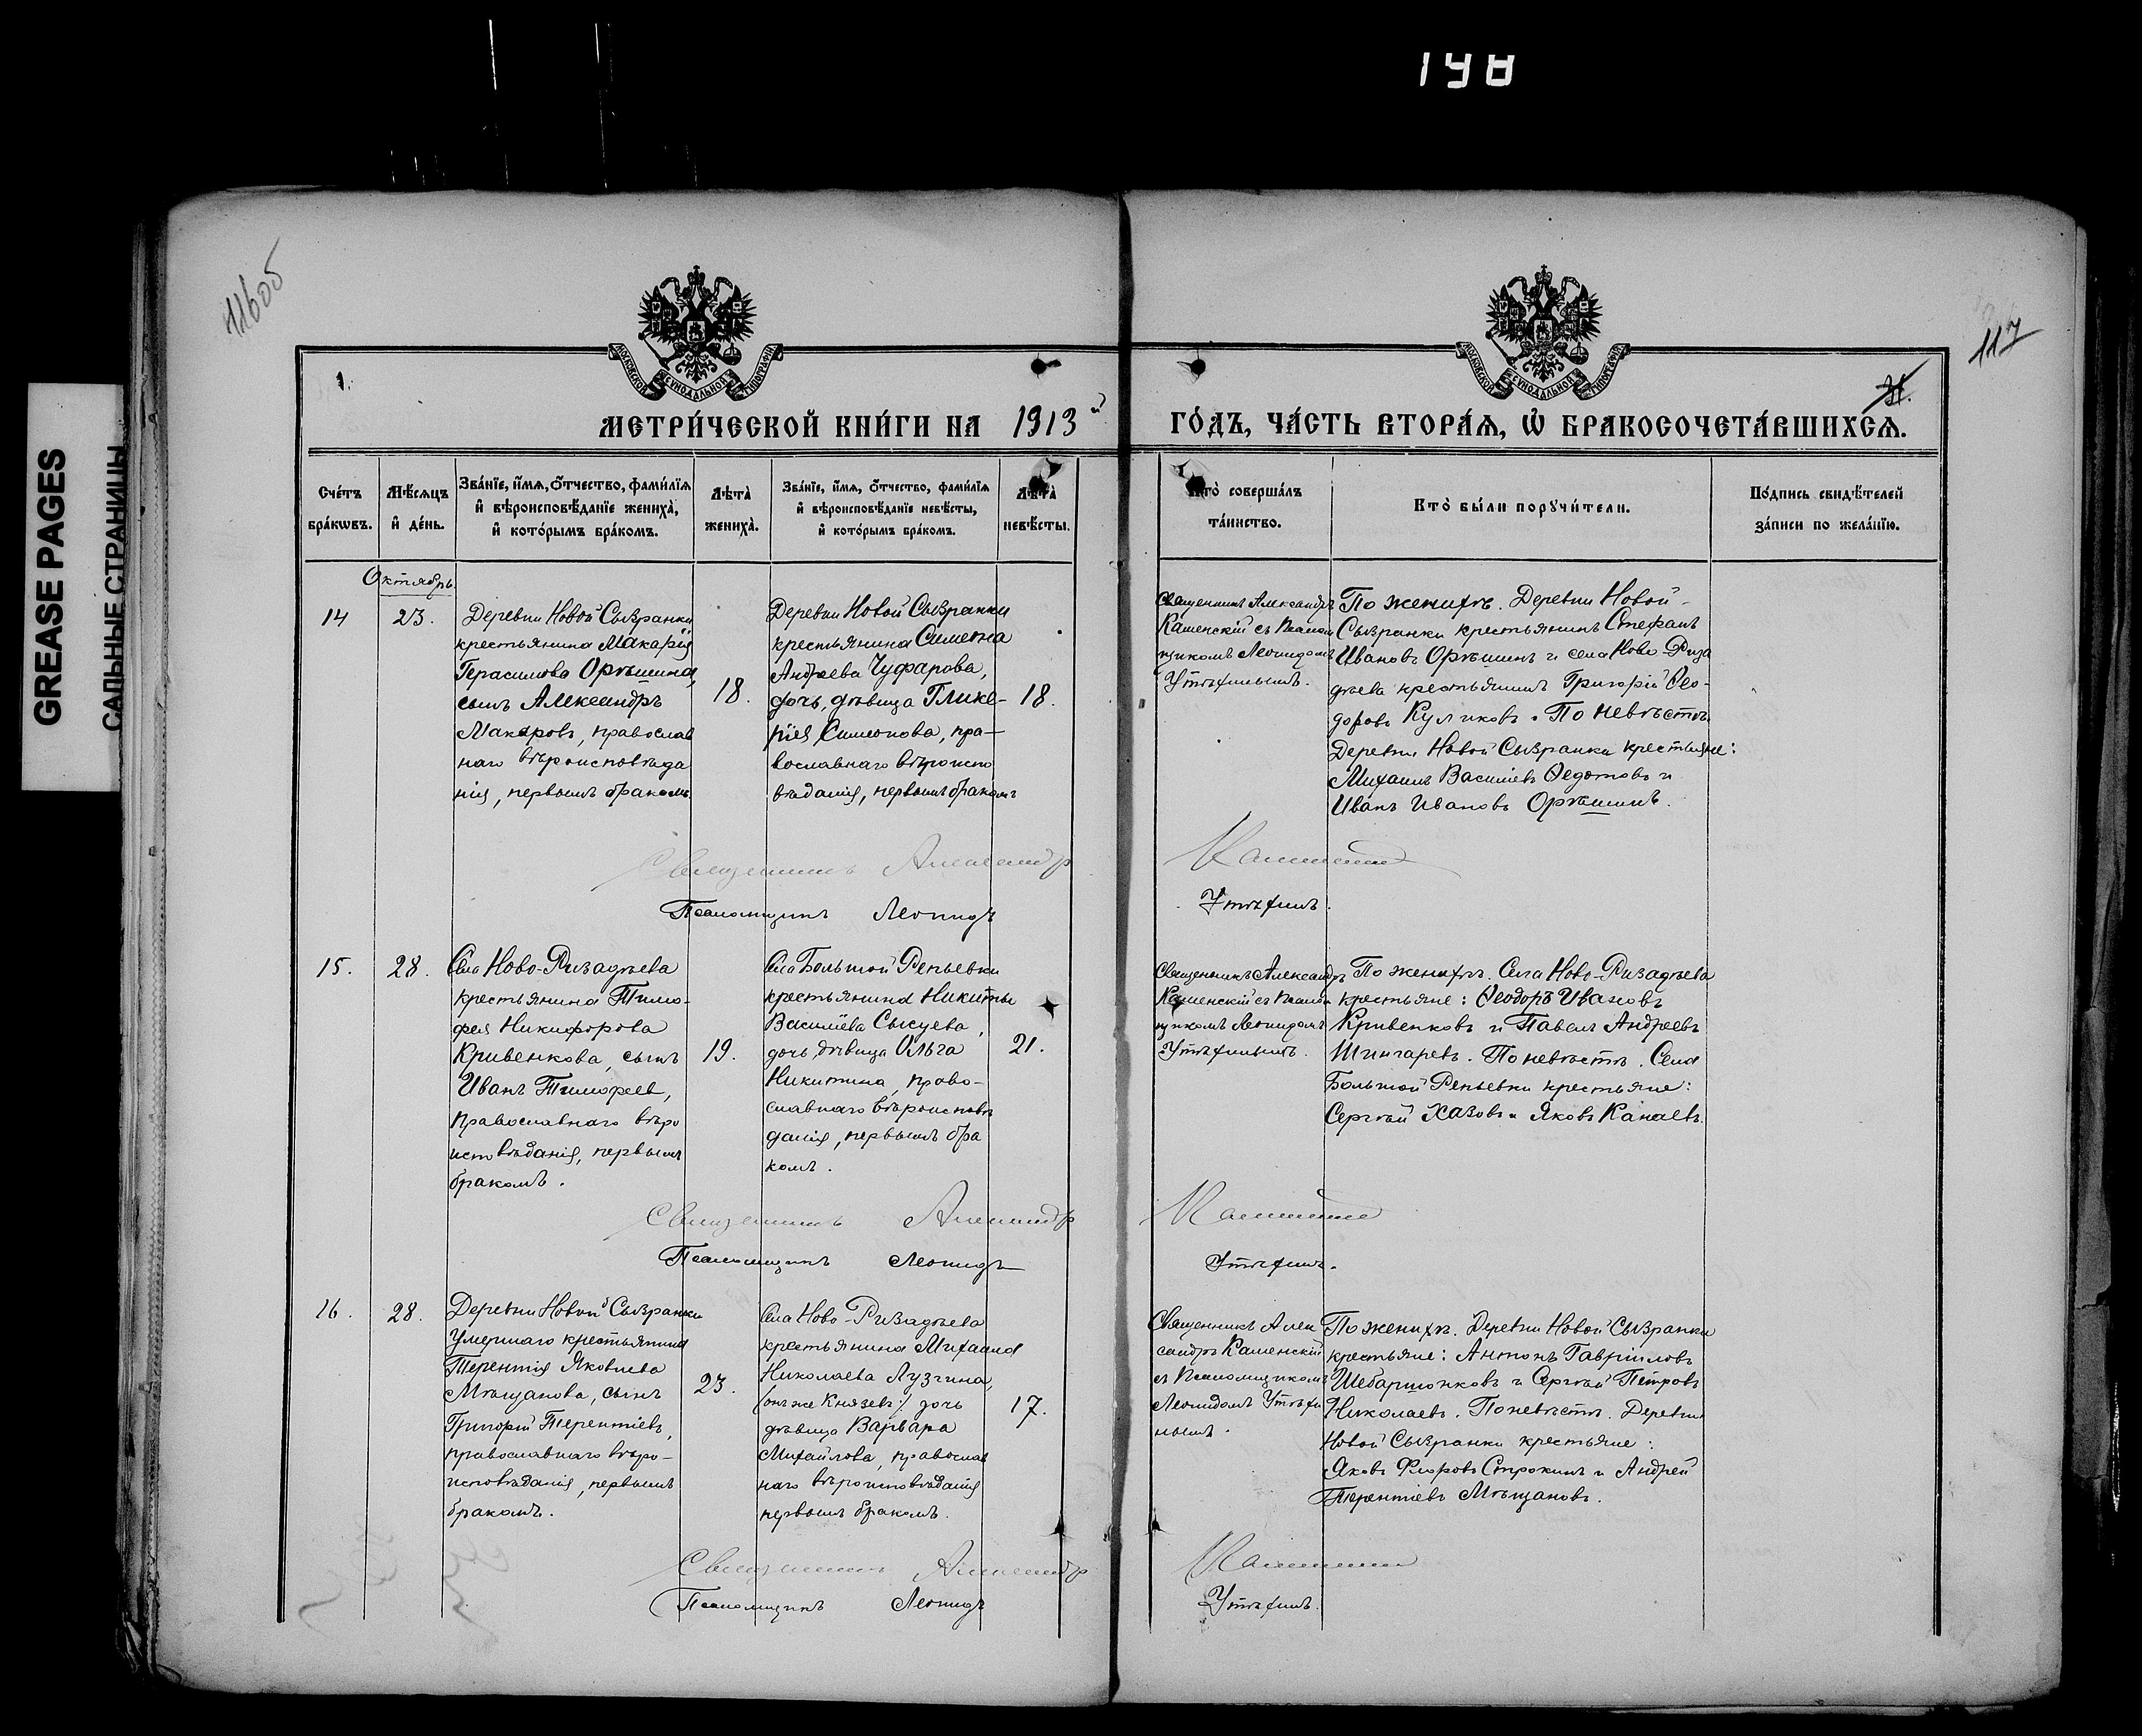 198
GREASE PAGES
САЛЬНЫЕ СТРАНИЦЫ
116об
117
МОСКОВСКОЙ СѴНОДАЛЬНОЙ ТИПОГРАФІИ
МОСКОВСКОЙ СѴНОДАЛЬНОЙ ТИПОГРАФІИ
МЕТРИ́ЧЕСКОЙ КНИ́ГИ НА 1913й ГО́ДЪ, ЧА́СТЬ ВТОРА́Ѧ, Ѡ҆ БРАКОСОЧЕТА́ВШИХСѦ.
Сче́тъ бра́кѡвъ.
Мѣ́сѧцъ и҆ де́нь.
Зва́нїе, и҆́мѧ, ѻ҆́тчество, фами́лїѧ
и҆ вѣроисповѣ́данїе жениха̀,
и҆ кото́рымъ бра́комъ.
Лѣта̀ жениха̀.
Зва́нїе, и҆́мѧ, ѻ҆́тчество, фами́лїѧ
и҆ вѣроисповѣ́данїе невѣ́сты,
и҆ кото́рымъ бра́комъ.
Лѣта̀ невѣ́сты.
Кто̀ соверша́лъ
та́инство.
Кто̀ бы́ли порꙋчи́тели.
По́дпись свидѣ́телей
за́писи по жела́нїю.
Октябрь.
14
23.
Деревни Новой Сызранки
крестьянина Макарія
Герасимова Орѣшина,
сынъ Александръ
Макаровъ, православ
наго вѣроисповѣда
нія, первымъ бракомъ.
18.
Деревни Новой Сызранки
крестьянина Симеона
Андреева Чуфарова,
дочь, дѣвица Глике-
рія Симеонова, пра-
вославнаго вѣроиспо
вѣданія, первымъ бракомъ
18.
Священникъ Александръ
Каменскій съ Псаломщ
щикомъ Леонидомъ
Утѣхинымъ.
По женихѣ. Деревни Новой
Сызранки крестьянинъ Стефанъ
Ивановъ Орѣшинъ и села Ново-Риза
дѣева крестьянинъ Григорій Ѳео-
доровъ Куликовъ. По невѣстѣ.
Деревни Новой Сызранки крестьяне:
Михаилъ Василіевъ Ѳедотовъ и
Иванъ Ивановъ Орѣшинъ.
Священникъ Александръ Каменскій
Псаломщикъ Леонидъ Утѣхинъ.
15.
28.
Села Ново-Ризадѣева
крестьянина Тимо-
фея Никифорова
Кривенкова, сынъ
Иванъ Тимофеев,
православнаго вѣро
исповѣданія, первымъ
бракомъ.
19.
Села Большой Репьевки
крестьянина Никиты
Василіева Сысуева,
дочь, дѣвица Ольга
Никитина, право-
славнаго вѣроисповѣ
данія, первымъ бра
комъ.
21.
Священникъ Александръ
Каменскій съ Псалом
щикомъ Леонидомъ
Утѣхинымъ.
По женихѣ. Села Ново-Ризадѣева
крестьяне: Ѳеодоръ Ивановъ
Кривенковъ и Павелъ Андреевъ
Шингаревъ. По невѣстѣ. Села
Большой Репьевки крестьяне:
Сергѣй Хазовъ и Яковъ Канаевъ.
Священникъ Александръ Каменскій
Псаломщикъ Леонидъ Утѣхинъ.
16.
28.
Деревни Новой Сызранки
умершаго крестьянина
Терентія Яковлева
Мѣщанова, сынъ
Григорій Терентіевъ,
православнаго вѣро-
исповѣданія, первымъ
бракомъ.
23.
Села Ново-Ризадѣева
крестьянина Михаила
Николаева Лузгина,
/онъ же Князевъ/ дочь
дѣвица Варвара
Михайлова, православ
наго вѣроисповѣданія
первымъ бракомъ.
17.
Священникъ Алек
сандръ Каменскій
съ Псаломщикомъ
Леонидомъ Утѣхи
нымъ.
По женихѣ. Деревни Новой Сызранки
крестьяне: Антонъ Гавріиловъ
Шебаршонковъ и Сергѣй Петровъ
Николаевъ. По невѣстѣ. Деревни
Новой Сызранки крестьяне:
Яковъ Флоровъ Строкинъ и Андрей
Терентіевъ Мѣщановъ.
Священникъ Александръ Каменскій
Псаломщикъ Леонидъ Утѣхинъ.